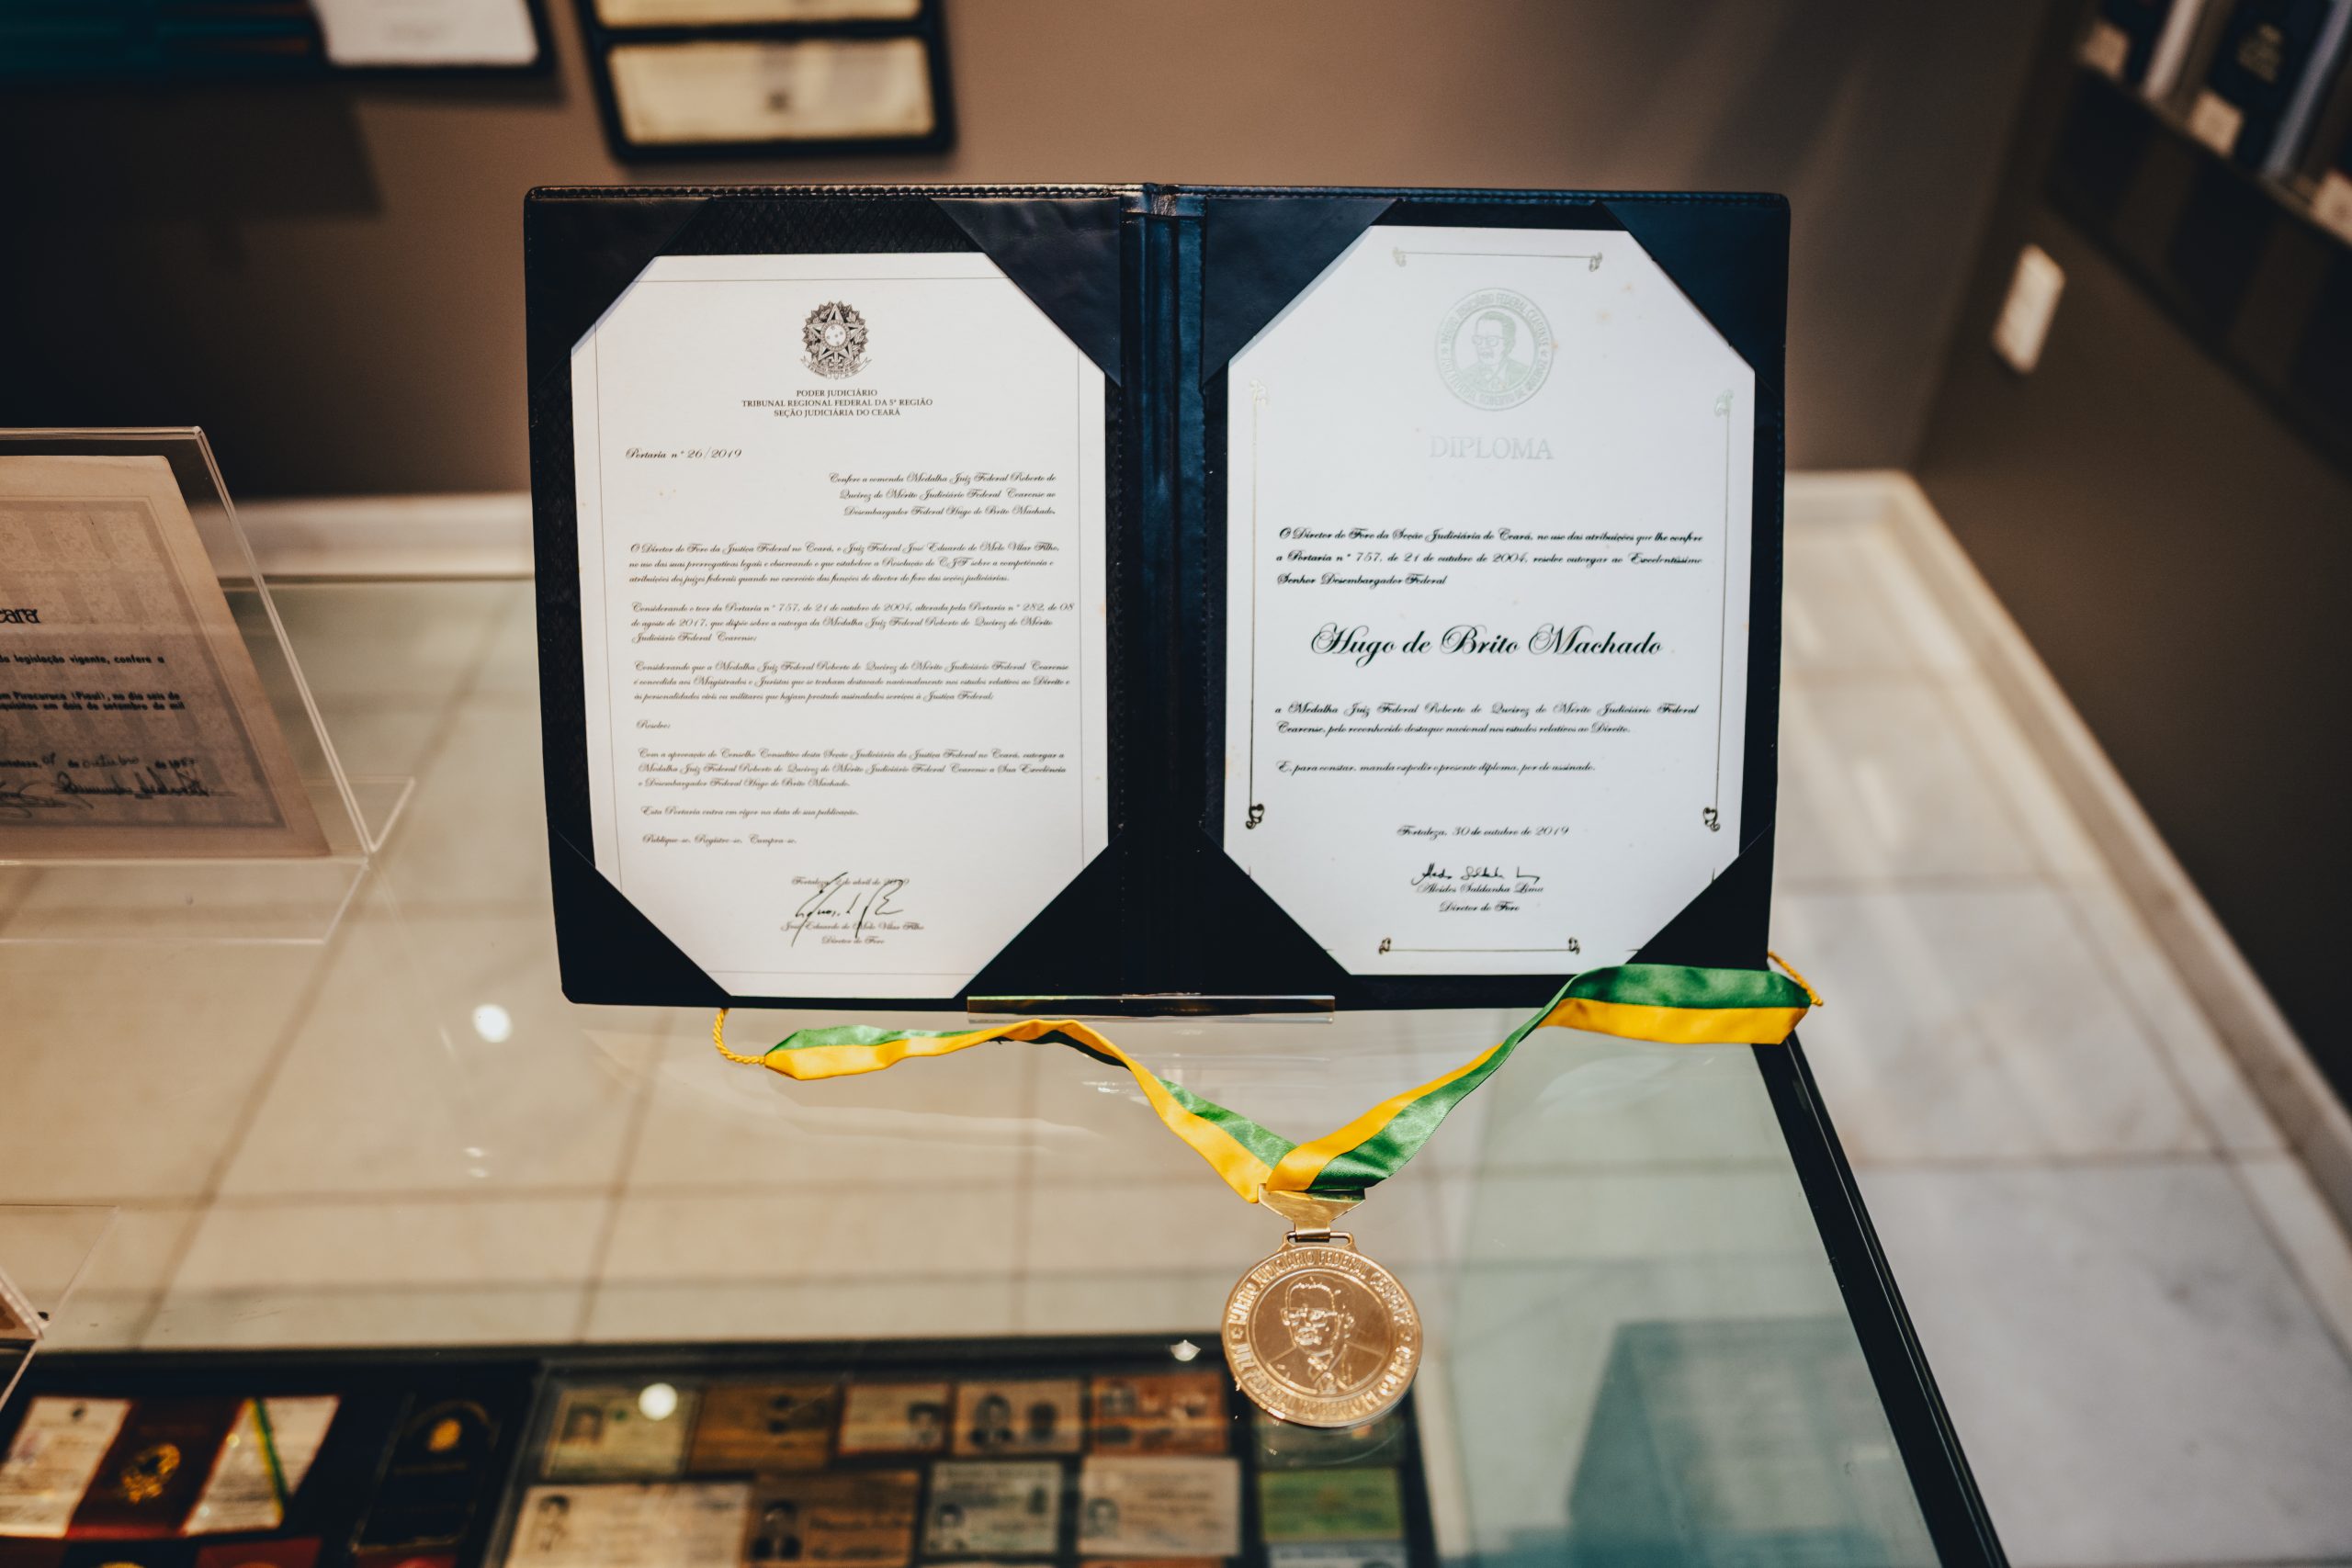 PODER JUDICIÁRIO
TRIBUNAL REGIONAL FEDERAL DA 5ª REGIÃO
SEÇÃO JUDICIÁRIA DO CEARÁ
Portaria nº 26/2019
Confere a comenda Medalha Juiz Federal Roberto de
Queiroz do Mérito Judiciário Federal Cearense ao
Desembargador Federal Hugo de Brito Machado.
O Diretor do Foro da Justiça Federal no Ceará, o Juiz Federal José Eduardo de Melo Vilar Filho,
no uso das suas prerrogativas legais e observando o que estabelece a Resolução do CJF sobre a competência e
atribuições dos juízes federais quando no exercício das funções de diretor do foro das seções judiciárias,
Considerando o teor da Portaria nº 757, de 21 de outubro de 2004, alterada pela Portaria nº 282, de 08
de agosto de 2017, que dispõe sobre a outorga da Medalha Juiz Federal Roberto de Queiroz do Mérito
Judiciário Federal Cearense;
Considerando que a Medalha Juiz Federal Roberto de Queiroz do Mérito Judiciário Federal Cearense
é concedida aos Magistrados e Juristas que se tenham destacado nacionalmente nos estudos relativos ao Direito e
às personalidades civis ou militares que hajam prestado assinalados serviços à Justiça Federal;
Resolve:
Com a aprovação do Conselho Consultivo desta Seção Judiciária da Justiça Federal no Ceará, outorgar a
Medalha Juiz Federal Roberto de Queiroz do Mérito Judiciário Federal Cearense a Sua Excelência
o Desembargador Federal Hugo de Brito Machado.
Esta Portaria entra em vigor na data de sua publicação.
Publique-se. Registre-se. Cumpra-se.
Fortaleza, de abril de
José Eduardo de Melo Vilar Filho
Diretor do Foro
MÉRITO JUDICIÁRIO FEDERAL CEARENSE
DIPLOMA
O Diretor do Foro da Seção Judiciária do Ceará, no uso das atribuições que lhe confere
a Portaria nº 757, de 21 de outubro de 2004, resolve outorgar ao Excelentíssimo
Senhor Desembargador Federal
Hugo de Brito Machado
a Medalha Juiz Federal Roberto de Queiroz do Mérito Judiciário Federal
Cearense, pelo reconhecido destaque nacional nos estudos relativos ao Direito.
E, para constar, manda expedir o presente diploma, por ele assinado.
Fortaleza, 30 de outubro de 2019
Alcides Saldanha Lima
Diretor do Foro
da legislação vigente, confere a
Piracuruca (Piauí), no dia seis de
em dois de setembro de mil
MÉRITO JUDICIÁRIO FEDERAL CEARENSE
FEDERAL ROBERTO